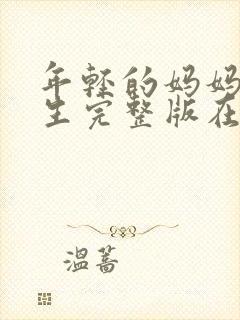 年轻的妈妈
生完整版在
温蒿